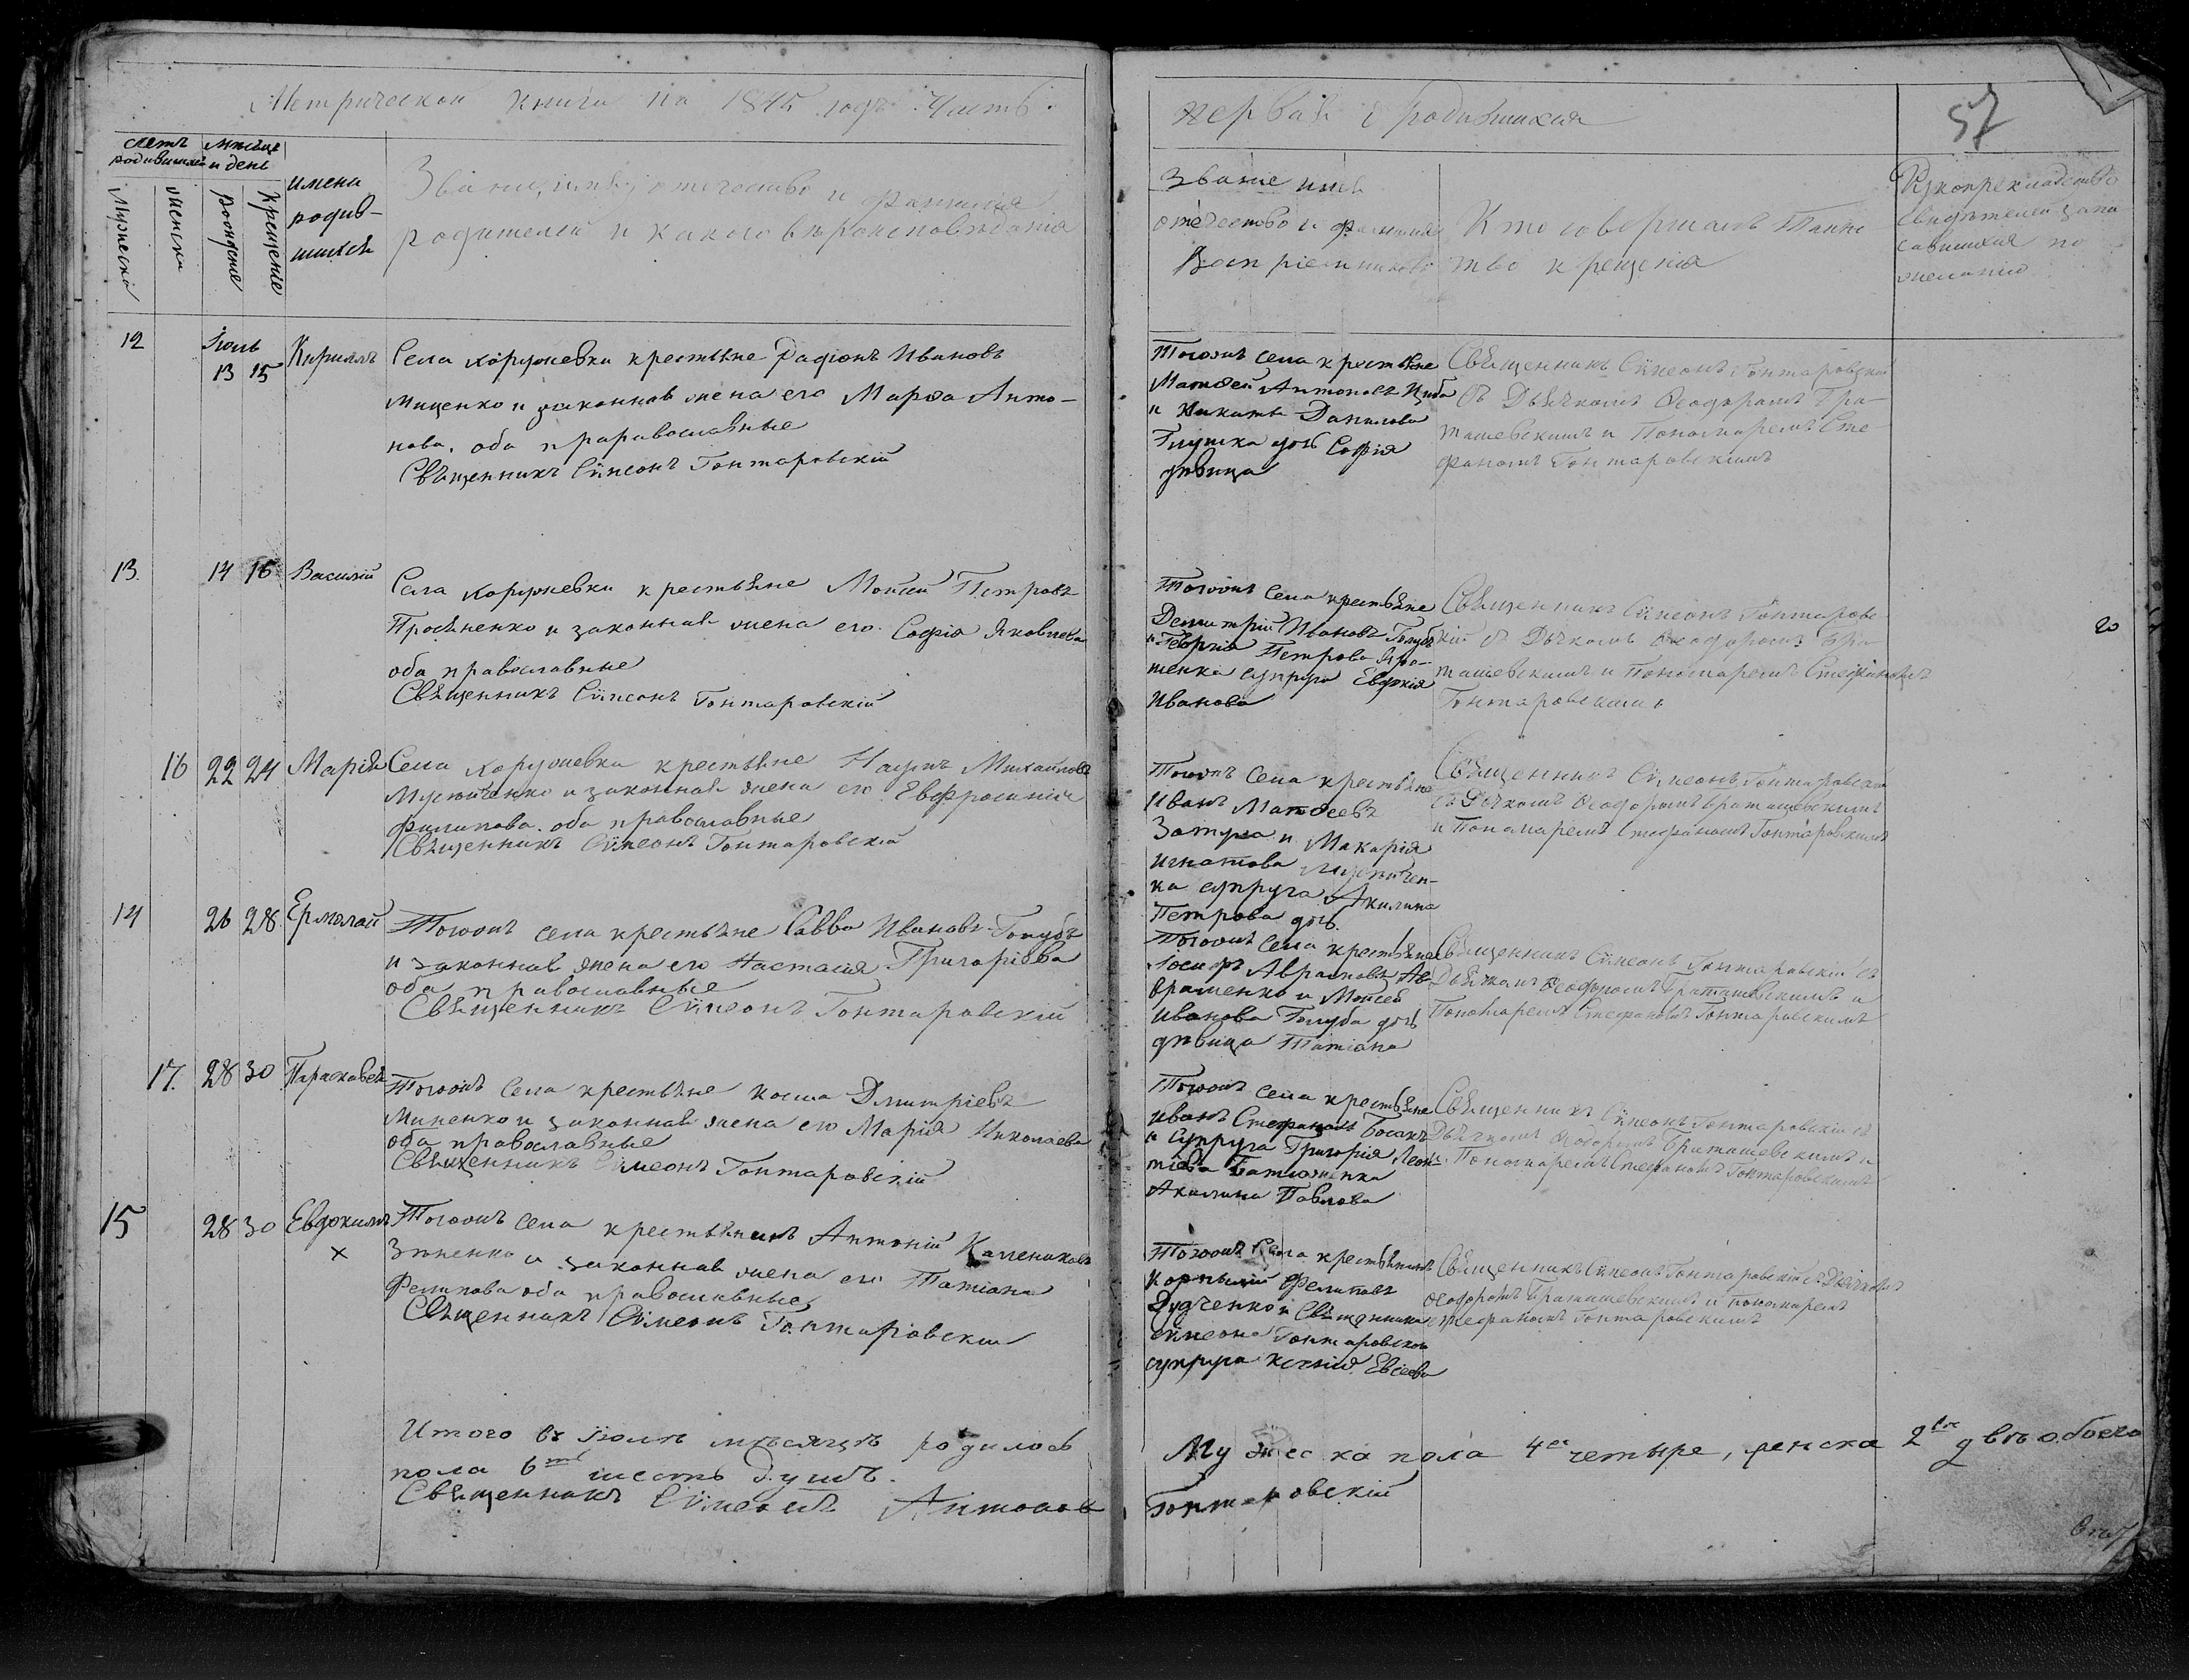 Метрической книги на 1845 годъ Часть
первая о родившихся
57
Счетъ родившихся
Мѣсяцъ и день
Мужеска
Женска
Рожденіе
Крещеніе
имена
родив-
шихся
Званіе, имя, отечество и фамилія
родителей и какого вѣроисповѣданія
Званіе имя
отечество и фамилія
Воспріемниковъ
Кто совершалъ Таин-
ство крещенія
Рукоприкладство
свидѣтелей запи
савшихся по
желанію
12
Іюль
13 15
Кириллъ
Села Коржевки крестьяне Радіонъ Ивановъ
Миценко и законная жена его Марѳа Анто-
нова. оба праравославные
Священникъ Сѷмеонъ Гонтаровскій
Тогожъ села крестьяне
Матѳей Антоновъ Цыба
и Никиты Данилова
Глушка дочь Софія
дѣвица
Священникъ Сѷмеонъ Гонтаровскій
съ Дьячкомъ Ѳеодоромъ Бра-
ташевскимъ и Пономаремъ Сте-
фаномъ Гонтаровскимъ
13.
14 16
Василій
Села Коржевки крестьяне Моѵсей Петровъ
Прояненко и законная жена его Софія Яковлева
оба православные
Священникъ Сѷмеонъ Гонтаровскій
Тогожъ села крестьяне
Демитрій Ивановъ Голубъ
и Георгія Петрова
супруга Евдокія
Иванова
Священникъ Сѷмеонъ Гонтаровс-
кій съ Дьячкомъ Ѳеодоромъ Бра-
ташевскимъ и Пономаремъ Стефаномъ
Гонтаровскимъ
20
16
22 24
Марія
Села Коржевки крестьяне Наумъ Михайловъ
и законная жена его Евфросинія
Филипова. оба православные
Священникъ Сѷмеонъ Гонтаровскій
Тогожъ села крестьяне
Иванъ Матѳеевъ
и Макарія
Игнатова
ка супруга Акилина
Петрова дочь.
Священникъ Сѷмеонъ Гонтаровскій
съ Дьячкомъ Ѳеодоромъ Браташевскимъ
и Пономаремъ Стефаномъ Гонтаровскимъ
14
26 28
Ермолай
Тогожъ села крестьяне Савва Ивановъ Голубъ
и законная жена его Настасія Григоріева
оба православные
Священникъ Сѷмеонъ Гонтаровскій
Тогожъ села крестьяне
Іосифъ Аврамовъ Ав-
раменко и Моѵсея
Иванова Голуба дочь
дѣвица Татіана
Священникъ Сѷмеонъ Гонтаровскій съ
Дьячкомъ Ѳеодоромъ Браташевскимъ и
Пономаремъ Стефаномъ Гонтаровскимъ
17.
28 30
Параскавея
Тогожъ села крестьяне Косма Дмитріевъ
Миненко и законная жена его Марія Николаева
оба православные
Священникъ Сѷмеонъ Гонтаровскій
Тогожъ села крестьяне
Иванъ Стефановъ Босакъ
и супруга Григорія Леон-
тіева
Акилина Павлова
Священникъ Сѷмеонъ Гонтаровскій съ
Дьячкомъ Ѳеодоромъ Браташевскимъ и
Пономаремъ Стефаномъ Гонтаровскимъ
15
28 30
Евдокимъ
х
Тогожъ села крестьянинъ Антоній Калениковъ
Зѣненко и законная жена его Татіана
Филипова оба православные
Священникъ Сѷмеонъ Гонтаровскій
Тогожъ села крестьянинъ
Корнилій Филиповъ
Дудченко и Священника
Сѷмеона Гонтаровскаго
супруга Ксенія Евсеева
Священникъ Сѷмеонъ Гонтаровскій съ Дьячкомъ
Ѳеодоромъ Браташевскимъ и пономаремъ
стефаномъ Гонтаровскимъ
Итого въ Іюлѣ мѣсяцѣ родилось Мужеска пола 4ре четыре, женска 2вѣ двѣ обоего
пола 6ть шесть душъ.
Священникъ Сѷмеонъ Антоновъ Гонтаровскій